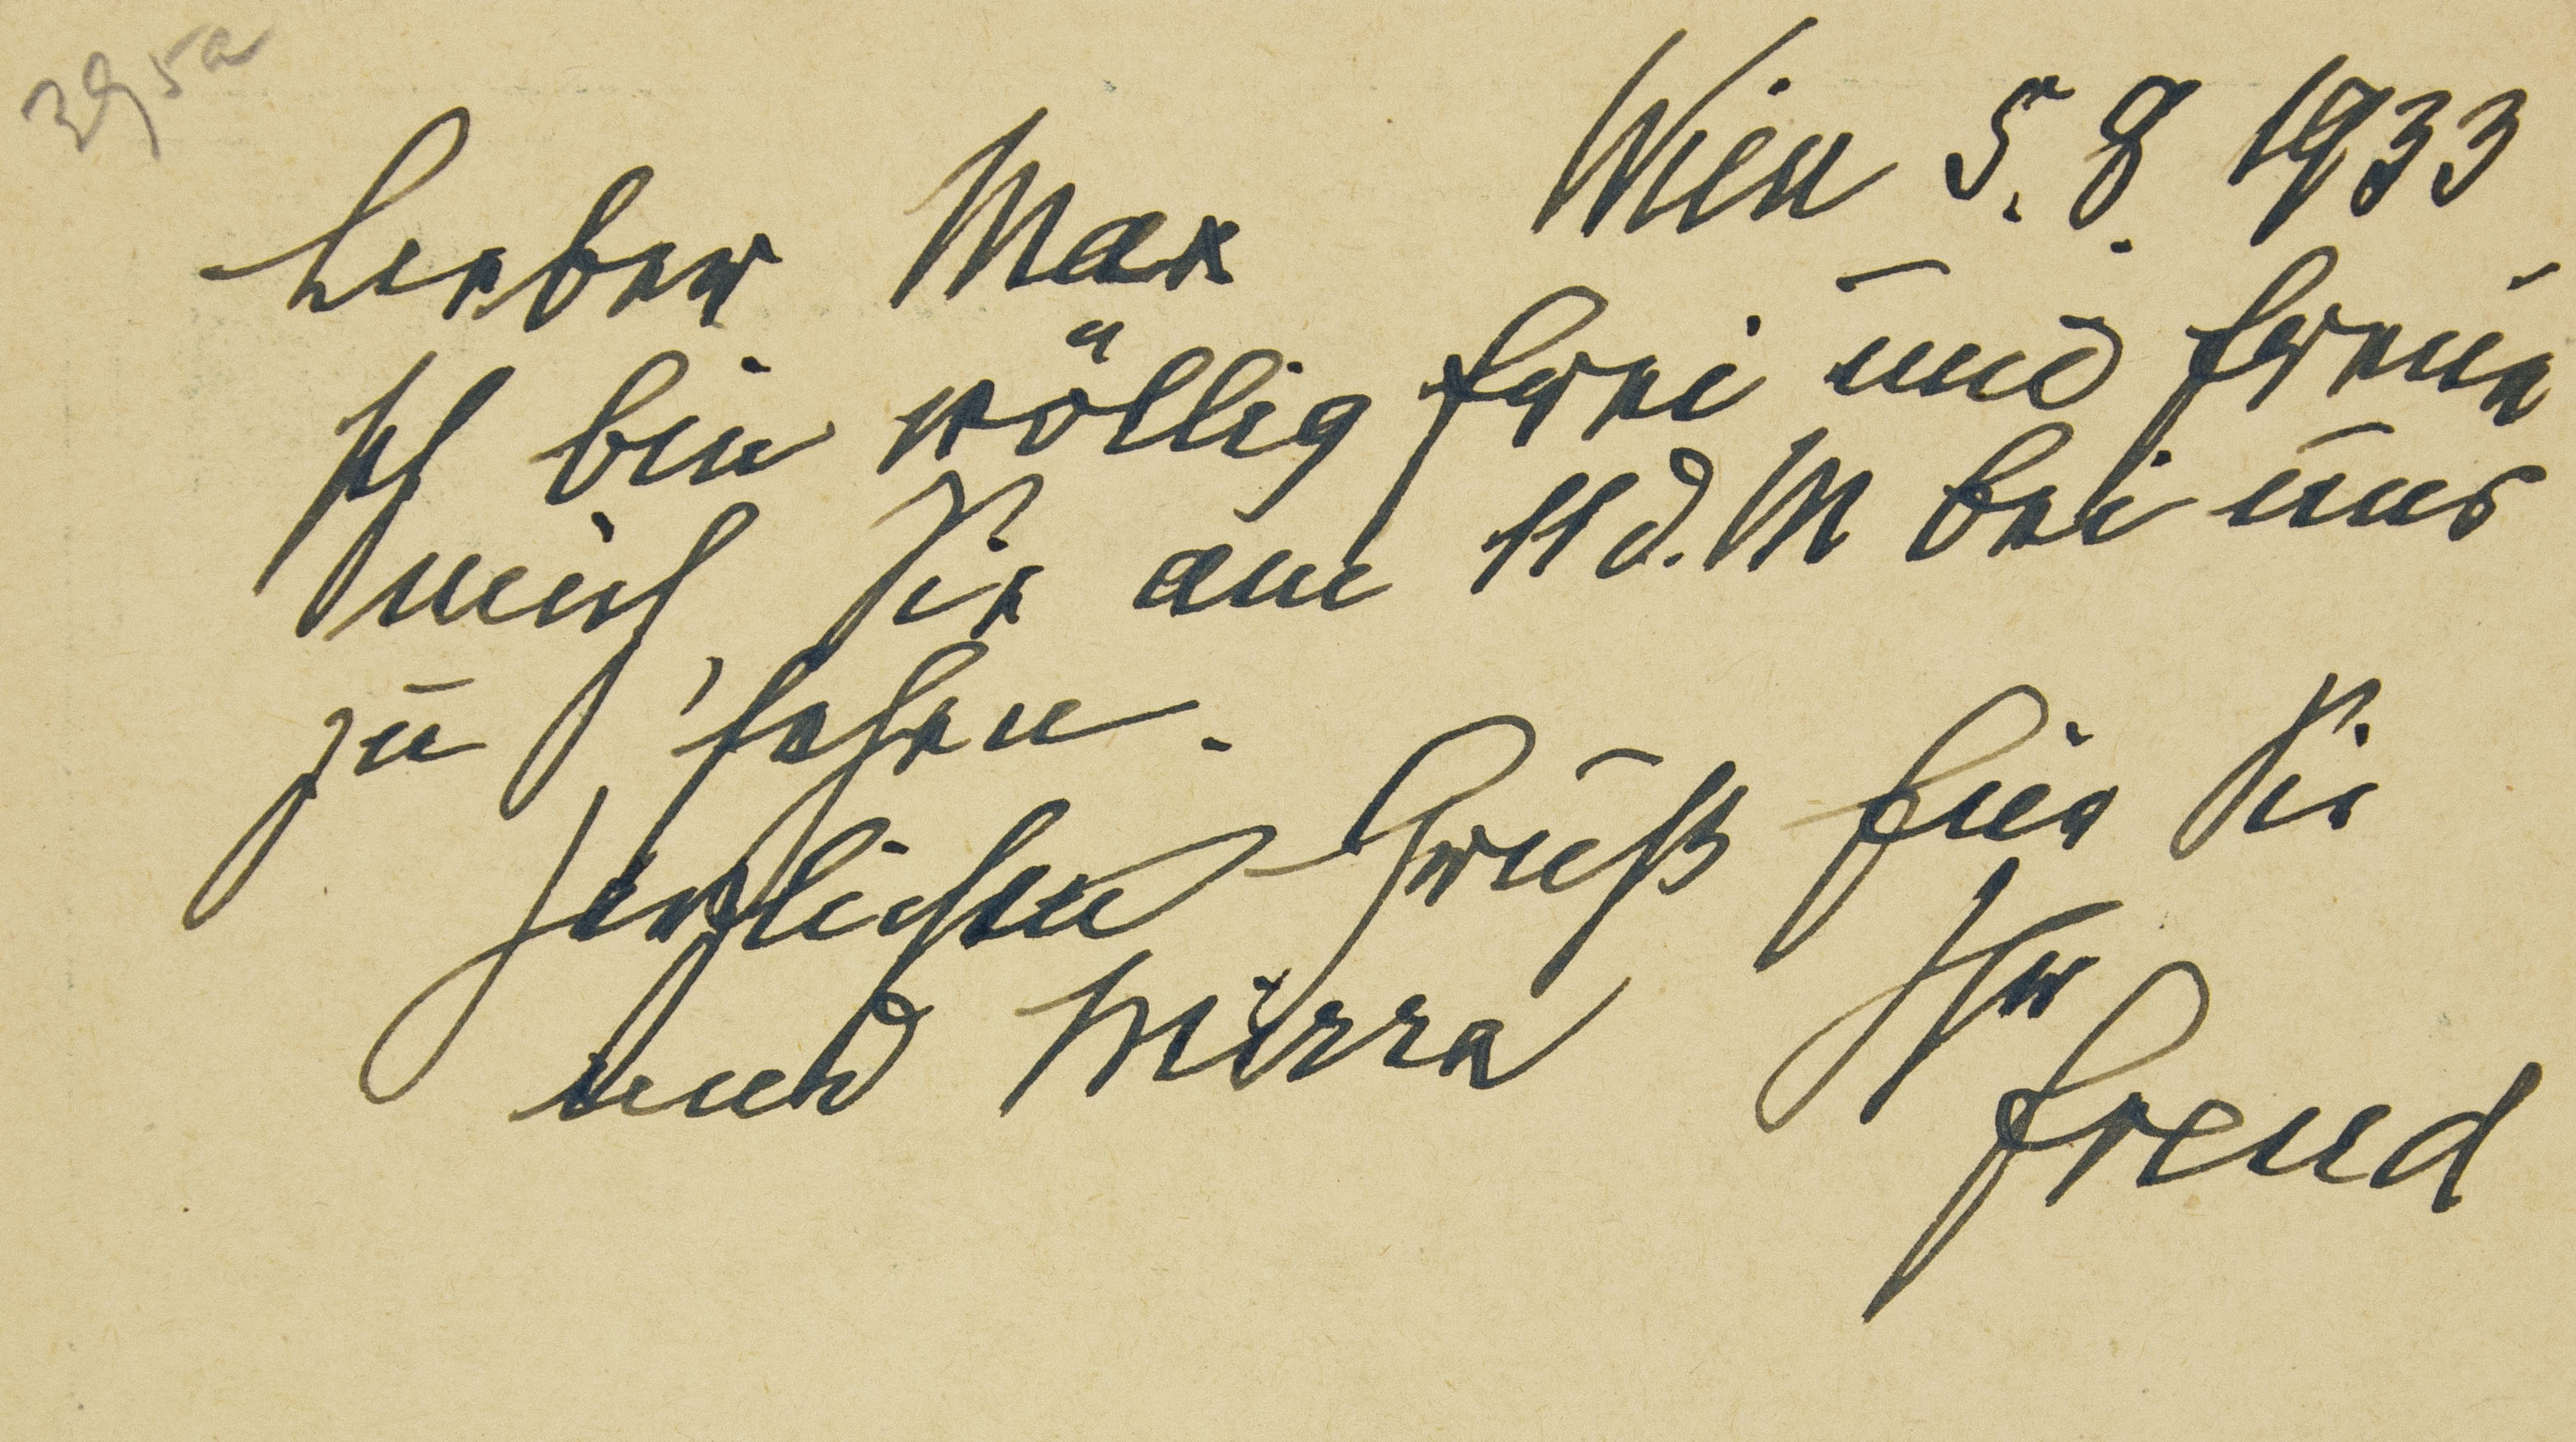 39,5a
Wien 5.8.1933
Lieber Max
Ich bin völlig frei und freue
mich, Sie am 11 d. M bei uns
zu sehen.
Herzlichen Gruß für Sie
und Mirra
Ihr
Freud